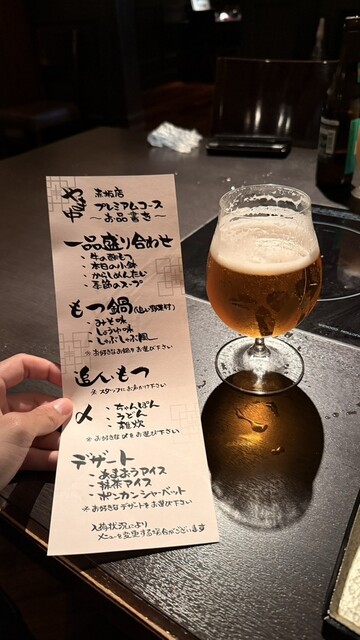 やま中
赤坂店
プレミアムコース
～お品書き～
一品盛り合わせ
・牛の酢もつ
・本日の小鉢
・からしめんたい
・季節のスープ
もつ鍋(追い野菜付)
・みそ味
・しょうゆ味
・しゃぶしゃぶ風
※お好きなお鍋をお選び下さい
追いもつ
※スタッフにお声かけ下さい
〆
・ちゃんぽん
・うどん
・雑炊
※お好きな〆をお選び下さい
デザート
・あまおうアイス
・抹茶アイス
・ポンカンシャーベット
※お好きなデザートをお選び下さい
入荷状況により
メニューを変更する場合がございます